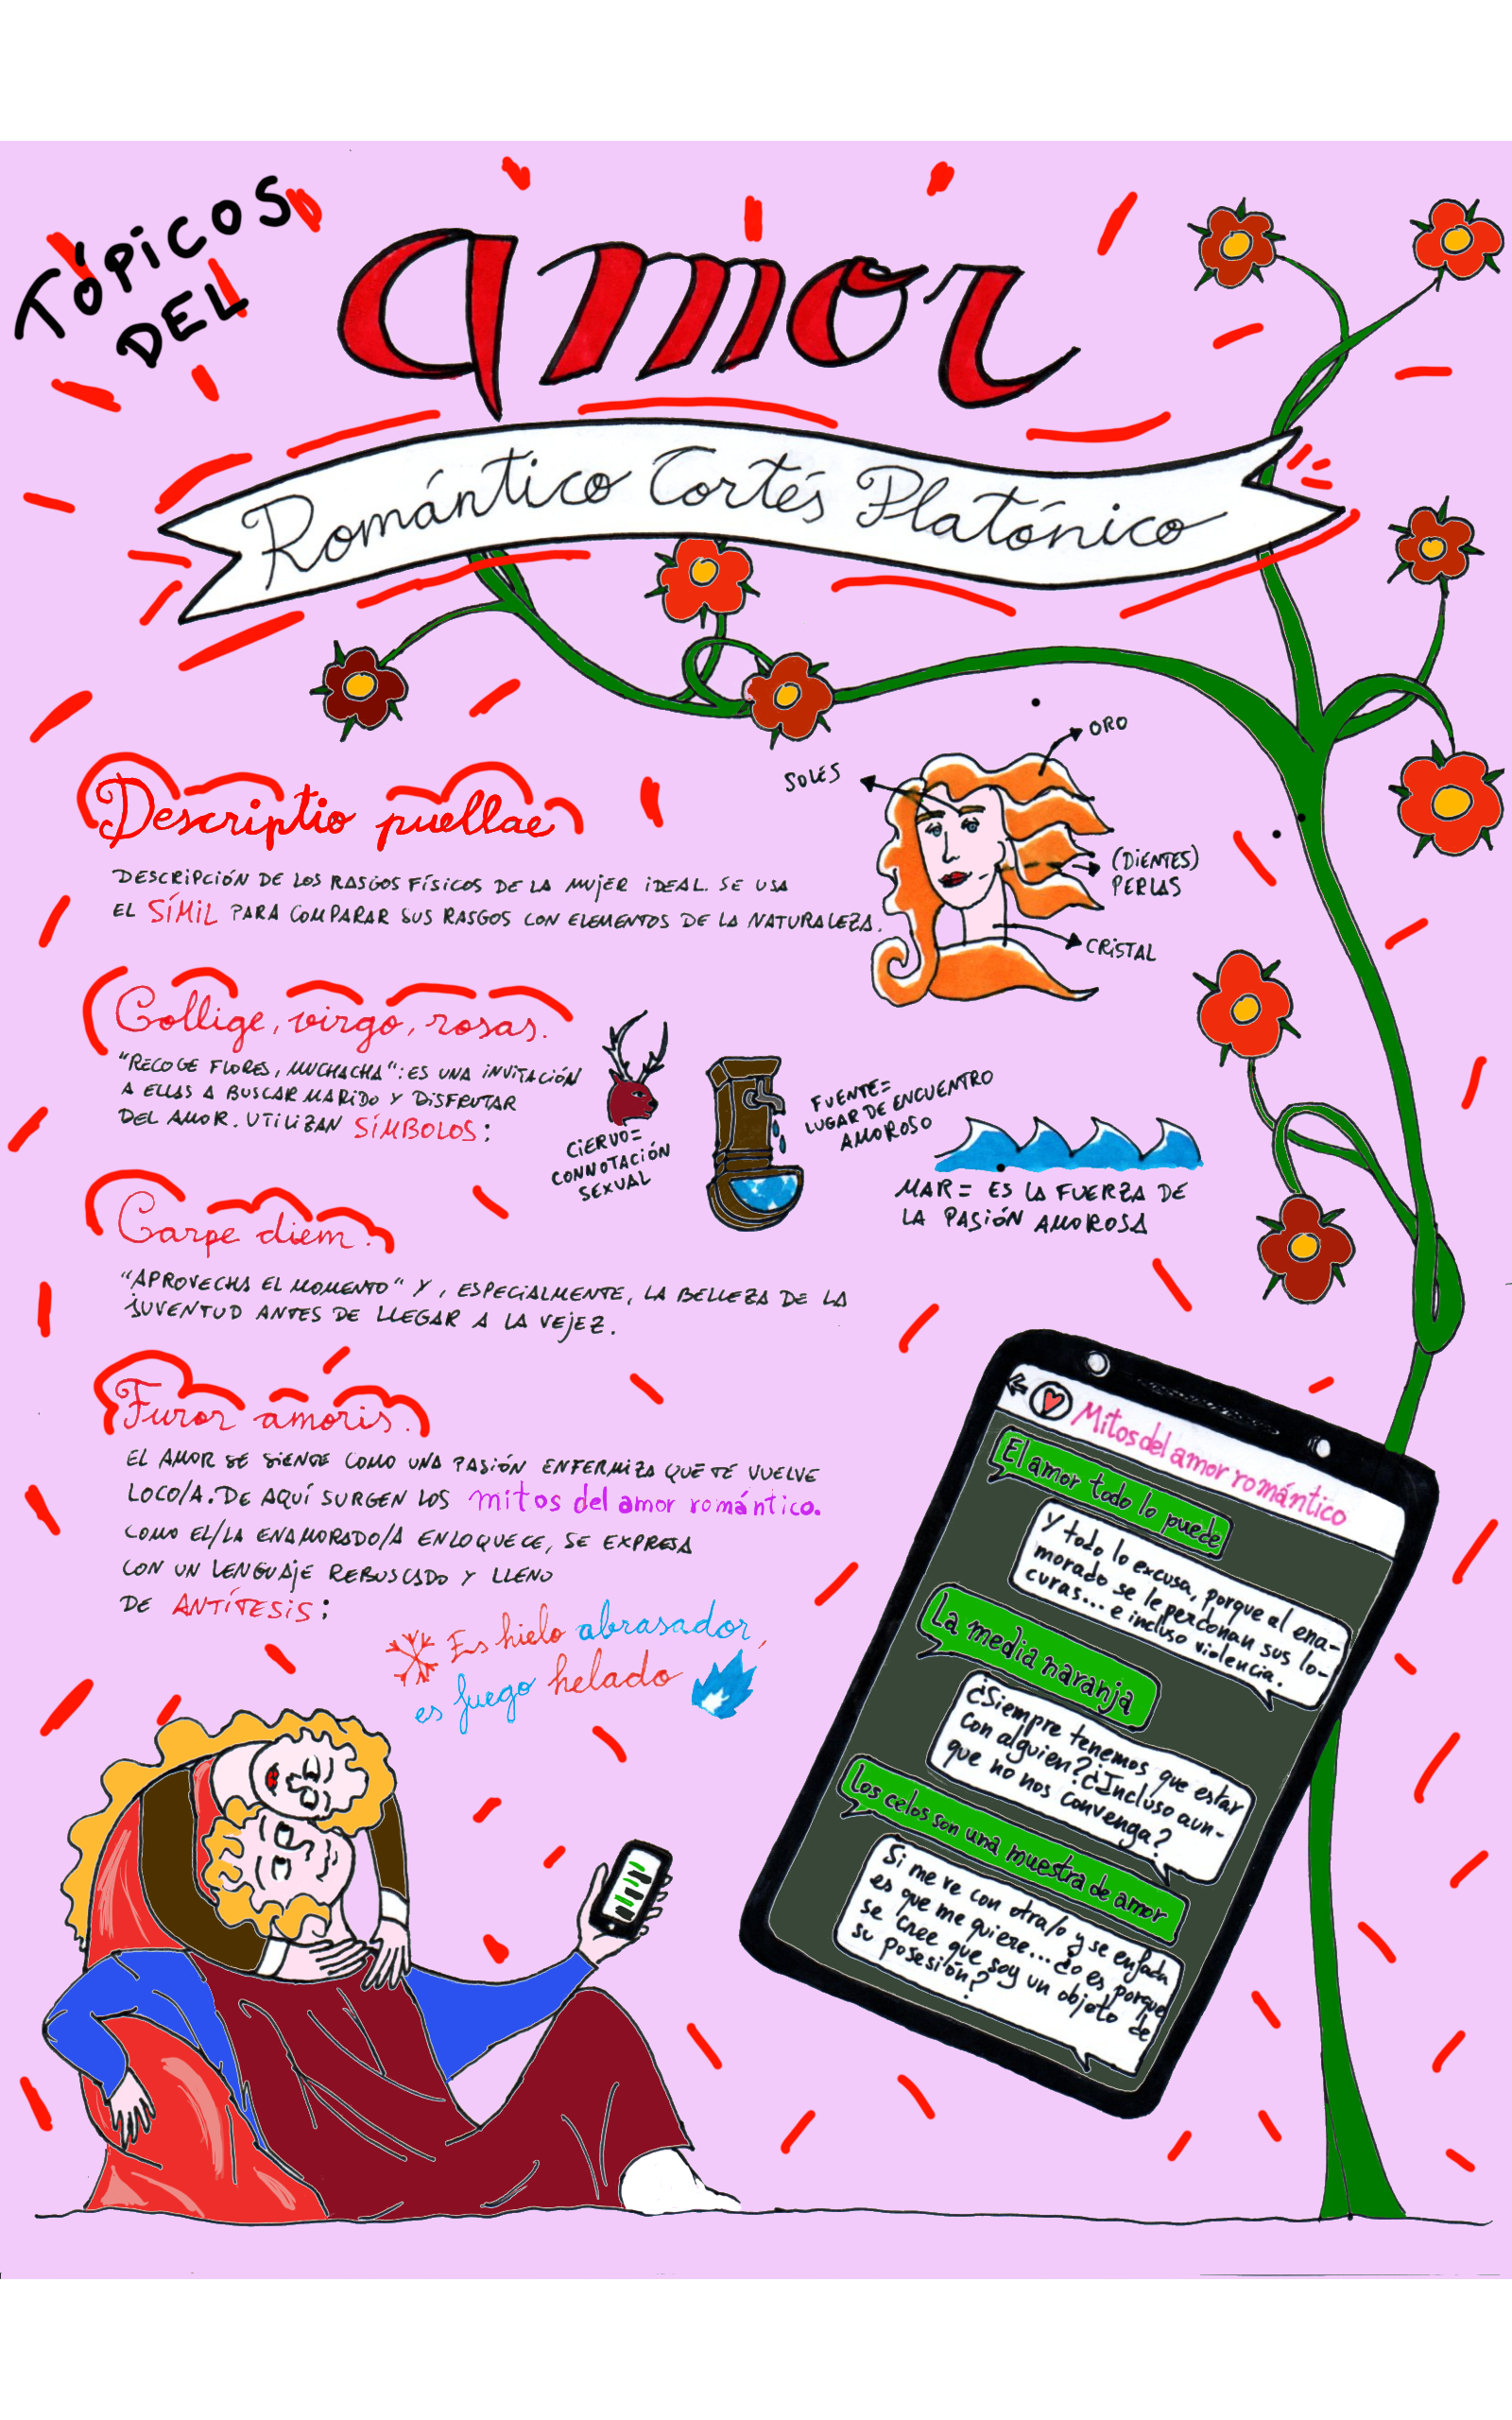 TÓPICOS
DEL
amor
Romántico Cortés Platónico
Descriptio puellae
DESCRIPCIÓN DE LOS RASGOS FÍSICOS DE LA MUJER IDEAL. SE USA
EL SÍMIL PARA COMPARAR SUS RASGOS CON ELEMENTOS DE LA NATURALEZA.
SOLES
ORO
(DIENTES)
PERLAS
CRISTAL
Collige, virgo, rosas.
"RECOGE FLORES, MUCHACHA": ES UNA INVITACIÓN
A ELLAS A BUSCAR MARIDO Y DISFRUTAR
DEL AMOR. UTILIZAN SÍMBOLOS:
CIERVO=
CONNOTACIÓN
SEXUAL
FUENTE=
LUGAR DE ENCUENTRO
AMOROSO
MAR= ES LA FUERZA DE
LA PASIÓN AMOROSA
Carpe diem.
"APROVECHA EL MOMENTO" Y, ESPECIALMENTE, LA BELLEZA DE LA
JUVENTUD ANTES DE LLEGAR A LA VEJEZ.
Furor amoris.
EL AMOR SE SIENTE COMO UNA PASIÓN ENFERMIZA QUE TE VUELVE
LOCO/A. DE AQUÍ SURGEN LOS mitos del amor romántico.
COMO EL/LA ENAMORADO/A ENLOQUECE, SE EXPRESA
CON UN LENGUAJE REBUSCADO Y LLENO
DE ANTÍTESIS:
Es hielo abrasador,
es fuego helado
Mitos del amor romántico
El amor todo lo puede
Y todo lo excusa, porque al ena-
morado se le perdonan sus lo-
curas... e incluso violencia.
La media naranja
¿Siempre tenemos que estar
con alguien? ¿Incluso aun-
que no nos convenga?
Los celos son una muestra de amor
Si me ve con otra/o y se enfada
es que me quiere... ¿o es porque
se cree que soy un objeto de
su posesión?